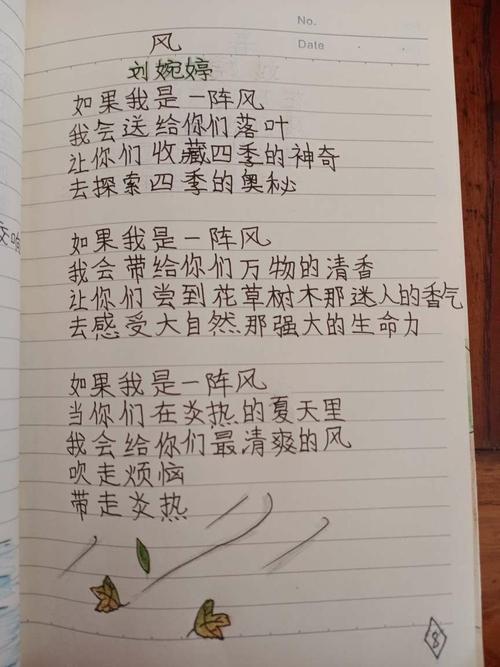 No.
Date
风
刘婉婷
如果我是一阵风
我会送给你们落叶
让你们收藏四季的神奇
去探索四季的奥秘
如果我是一阵风
我会带给你们万物的清香
让你们尝到花草树木那迷人的香气
去感受大自然那强大的生命力
如果我是一阵风
当你们在炎热的夏天里
我会给你们最清爽的风
吹走烦恼
带走炎热
8